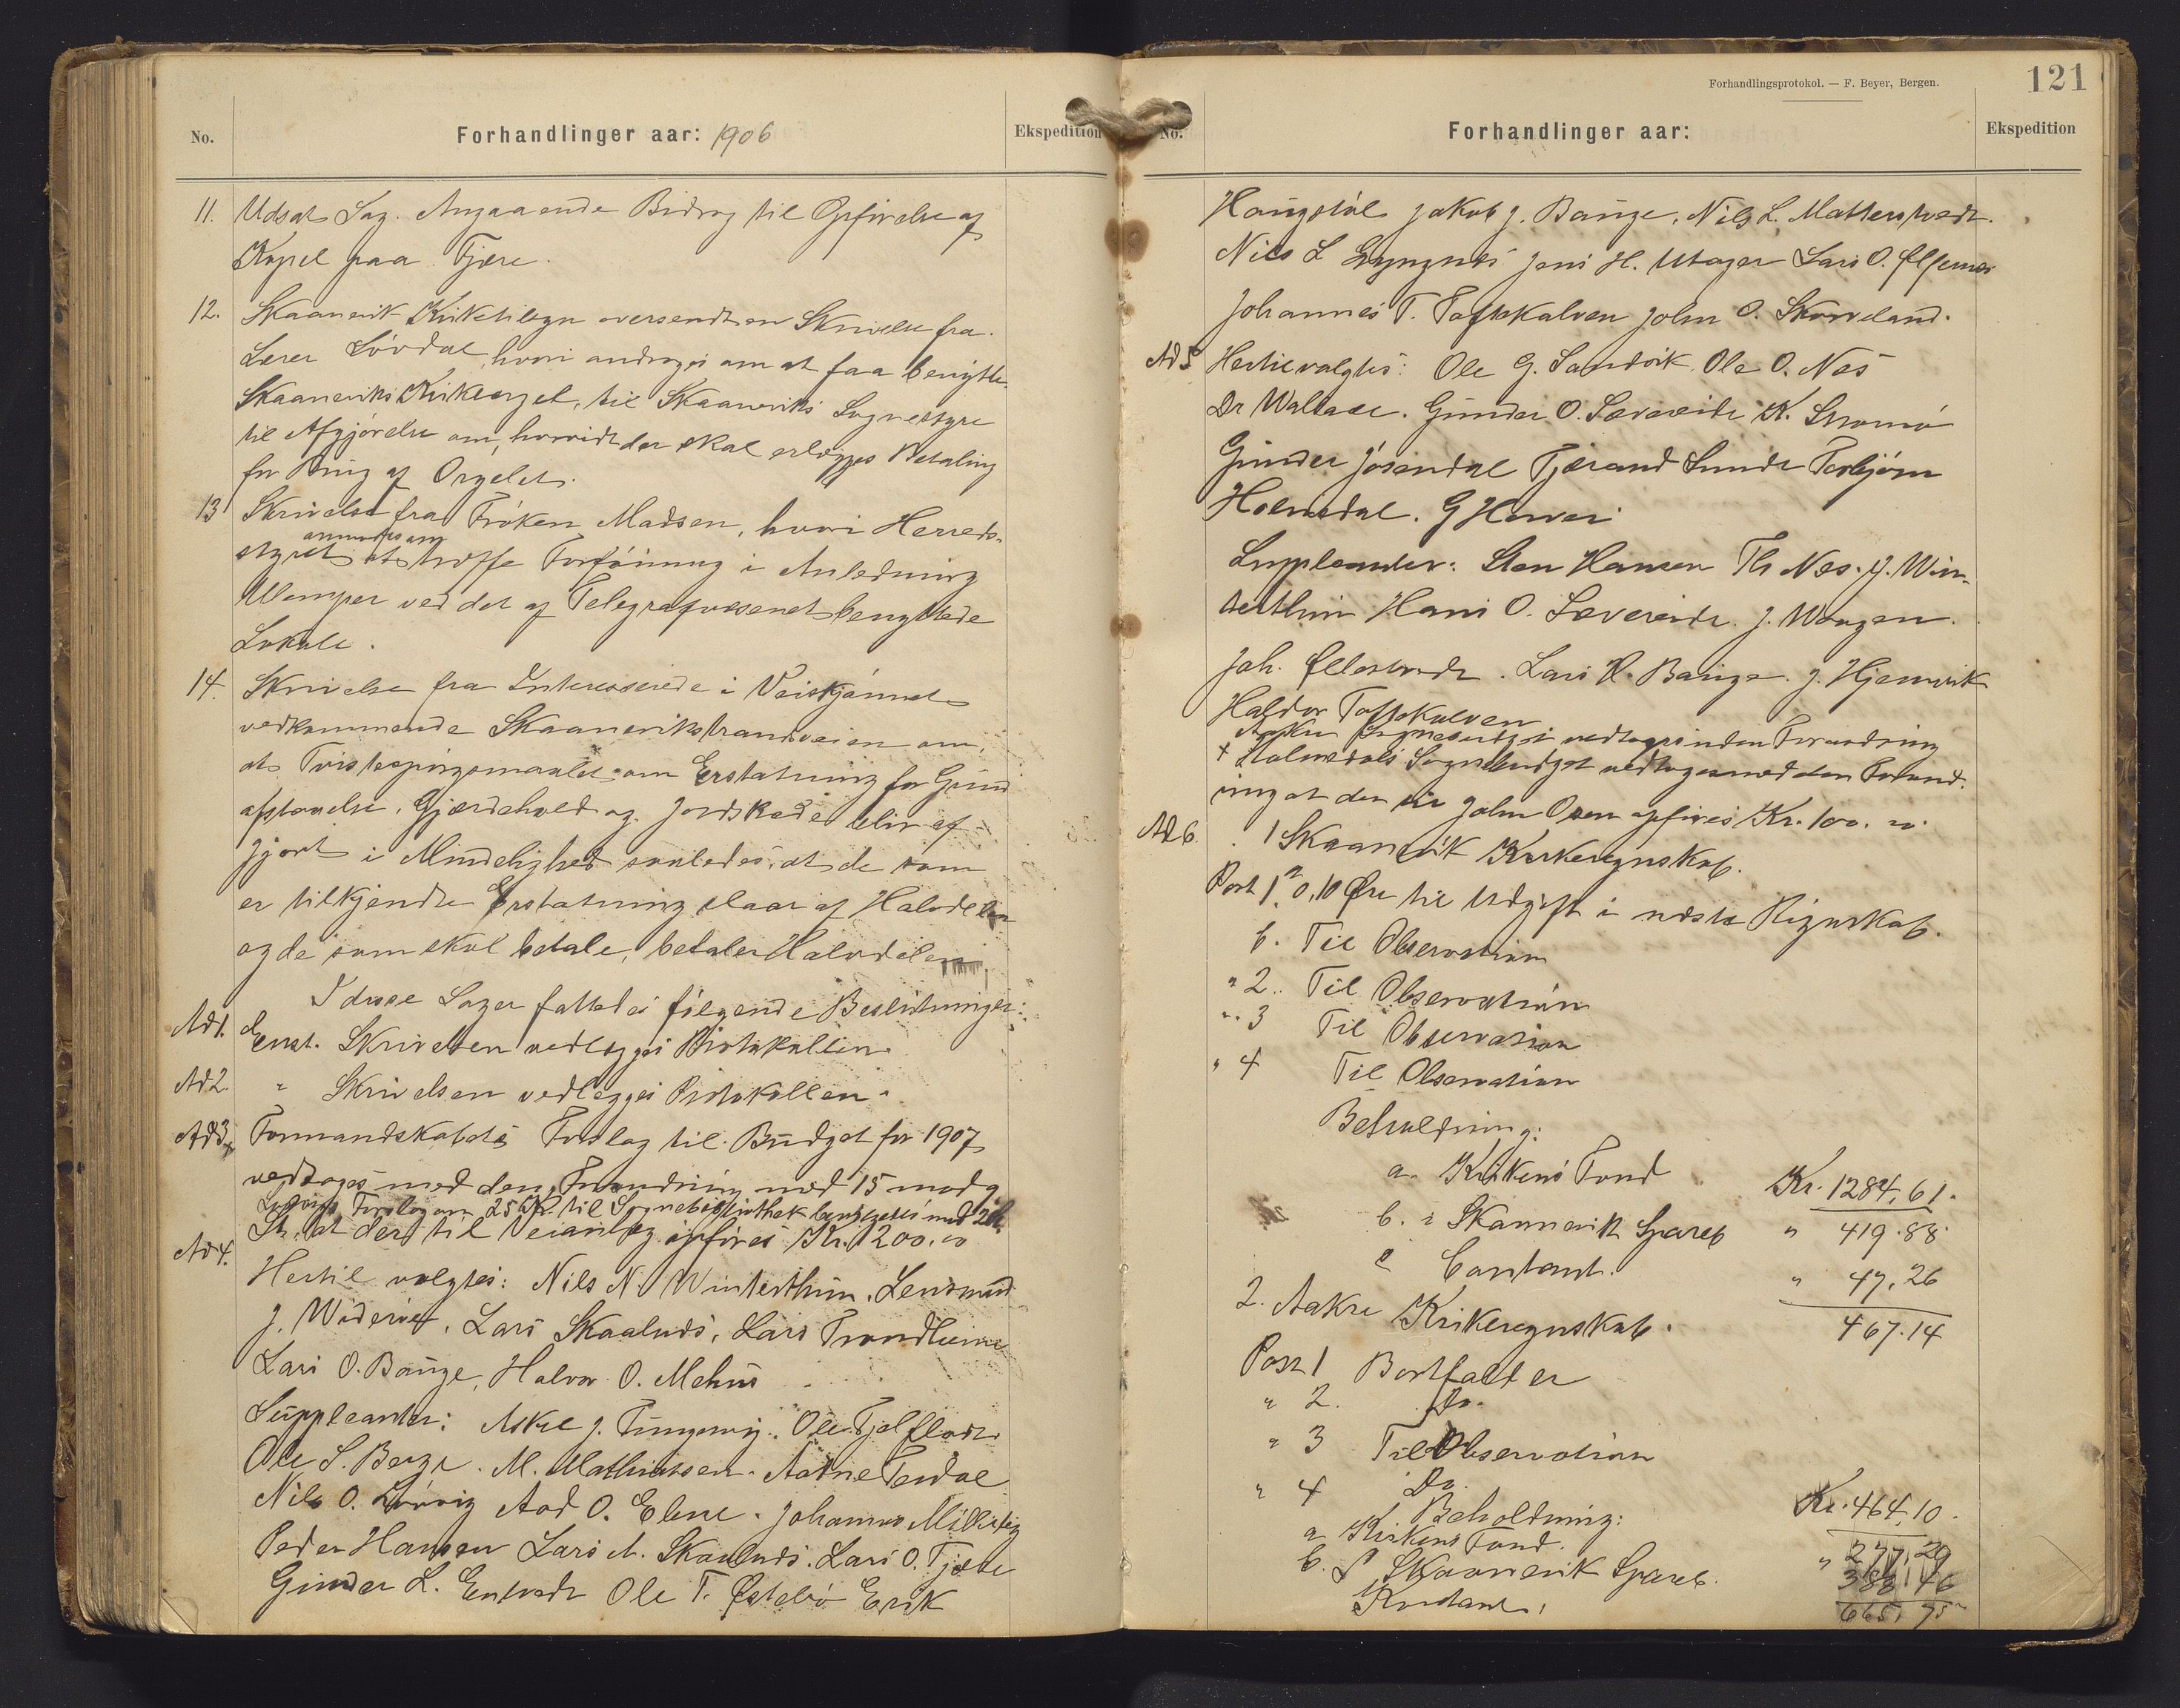 No.
Forhandlinger aar: 1906
Ekspedition
11. Udsat Sag. Angaaende Bidrag til Opførelse af
Kapel paa Fjære.
12. Skaanevik Kirketilsyn oversendt en Skrivelse fra
Lærer Løvdal, hvori andrages om at faa benytte
Skaaneviks Kirkeorgel, til Skaaneviks Sognestyre
til Afgjørelse om, hvorvidt der skal erlægges Betaling
for Brug af Orgelet.
13 Skrivelse fra Frøken Madsen, hvori Herreds-
anmodes om
styret at træffe Forføining i Anledning
Ulemper ved det af Telegrafvæsenet benyttede
Lokale.
14. Skrivelse fra Interesserede i Veiskjønnet
vedkommende Skaanevikstrandveien om,
at Tvistespørgsmaalet om Erstatning for Grund
afstaaelse, Gjærdehold og Jordskade bliv af
gjort i Mindelighed saaledes, at de som
er tilkjendte Erstatning slaar af Halvdelen
og de som skal betale, betaler Halvdelen
I disse Sager fattedes følgende Beslutninger:
Ad 1. Enst. Skrivelsen vedlægges Protokollen.
Ad 2 " Skrivelsen vedlægges Protokollen.
Ad 3 x Formandskabets Forslag til Budget for 1907
vedtoges med den Forandring med 15 mod 9
Forslag om 25 Kr. til Sognebibliothek
St. at der til Veianlæg opføres Kr. 1200.00
Ad 4. Hertil valgtes: Nils N. Winterthun. Lensmand
J. Widerøe, Lars Skaalnes, Lars Trondheim
Lars O. Bauge, Halvor O. Mehus
Suppleanter: Askel J. Ole Fjelflaat.
Ole S. Berge. M. Mathiassen. Aadne Tesdal
Nils O. Aad O. Ebne. Johannes Milje
Peder Hansen Lars A. Skaalnes. Lars O. Fjære
Gunder L. Ole T. Østebø Erik
Forhandlingsprotokol. — F. Beyer, Bergen.
121
No.
Forhandlinger aar:
Ekspedition
Haugstøl Jakob J. Bauge, Nils L. Matterstvedt.
Nils L Lyngnes Jens H. Utager Lars O.
Johannes T. Toftekalven John O. Skorveland.
Ad 5 Hertil valgtes: Ole G. Sandvik Ole O. Nes
Dr Wallace. Gunder O. Sævereide K. Strømø
Gunder Josendal Tjerand Sunde Torbjørn
Holmedal. G Hovern
Suppleanter: Sten Hansen Th Nes. J. Win-
terthun Hans O. Sævereide. J. Waagen.
Joh. Øllestvedt. Lars K. Bauge. J. Hjemvik
Haldor Toftekalven
Aakre Sognebudget vedtages uden Forandring
x Holmedals Sognebudget vedtages med den Forand-
ring at der til John Osen opføres Kr. 100.00
Ad 6. 1 Skaanevik Kirkeregnskab.
Post 1 a 0,10 Øre til Udgift i næste Regnskab.
b. Til Observation
" 2. Til Observation
" 3 Til Observation
" 4 Til Observation
Beholdning:
a. Kirkens Fond Kr. 1284,61.
b. i Skaanevik Spareb " 419.88
c Contant. " 47,26
467.14
2. Aakre Kirkeregnskab.
Post 1 Bortfalder
" 2. Do.
" 3 Til Observation
" 4 Do.
Beholdning:
a Kirkens Fond. Kr. 464,10.
b. I Skaanevik Spareb. " 277,29
Kontant, 388 46
665,75